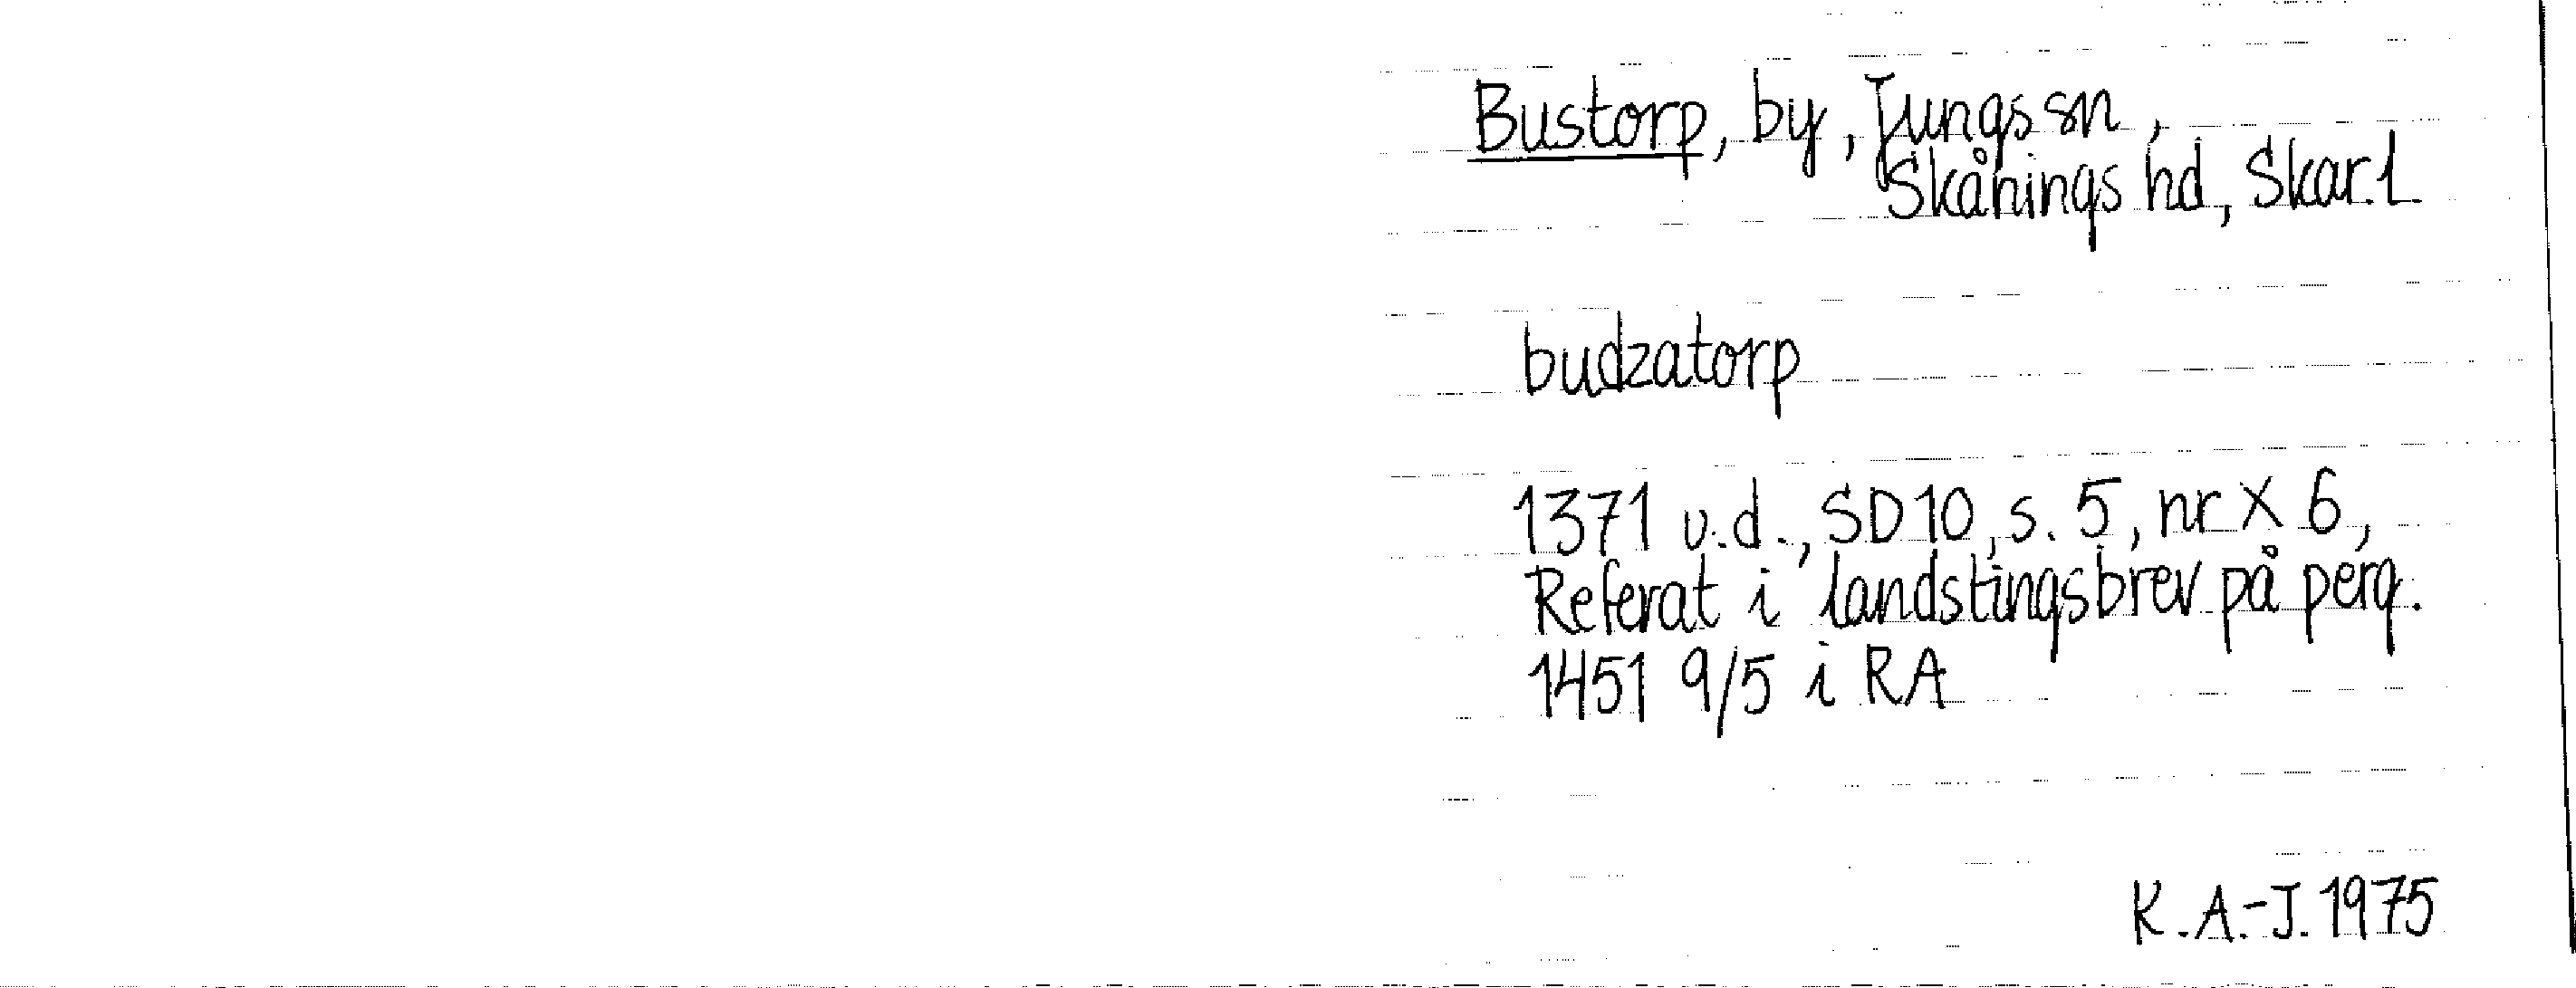 Bustorp, by, Jungs sn,
Skånings hd, Skar. l
budzatorp
1371 u.d., SD 10, s. 5, nr X 6,
Referat i landstingsbrev på perg.
1451 9/5 i RA
K.A.-J. 1975